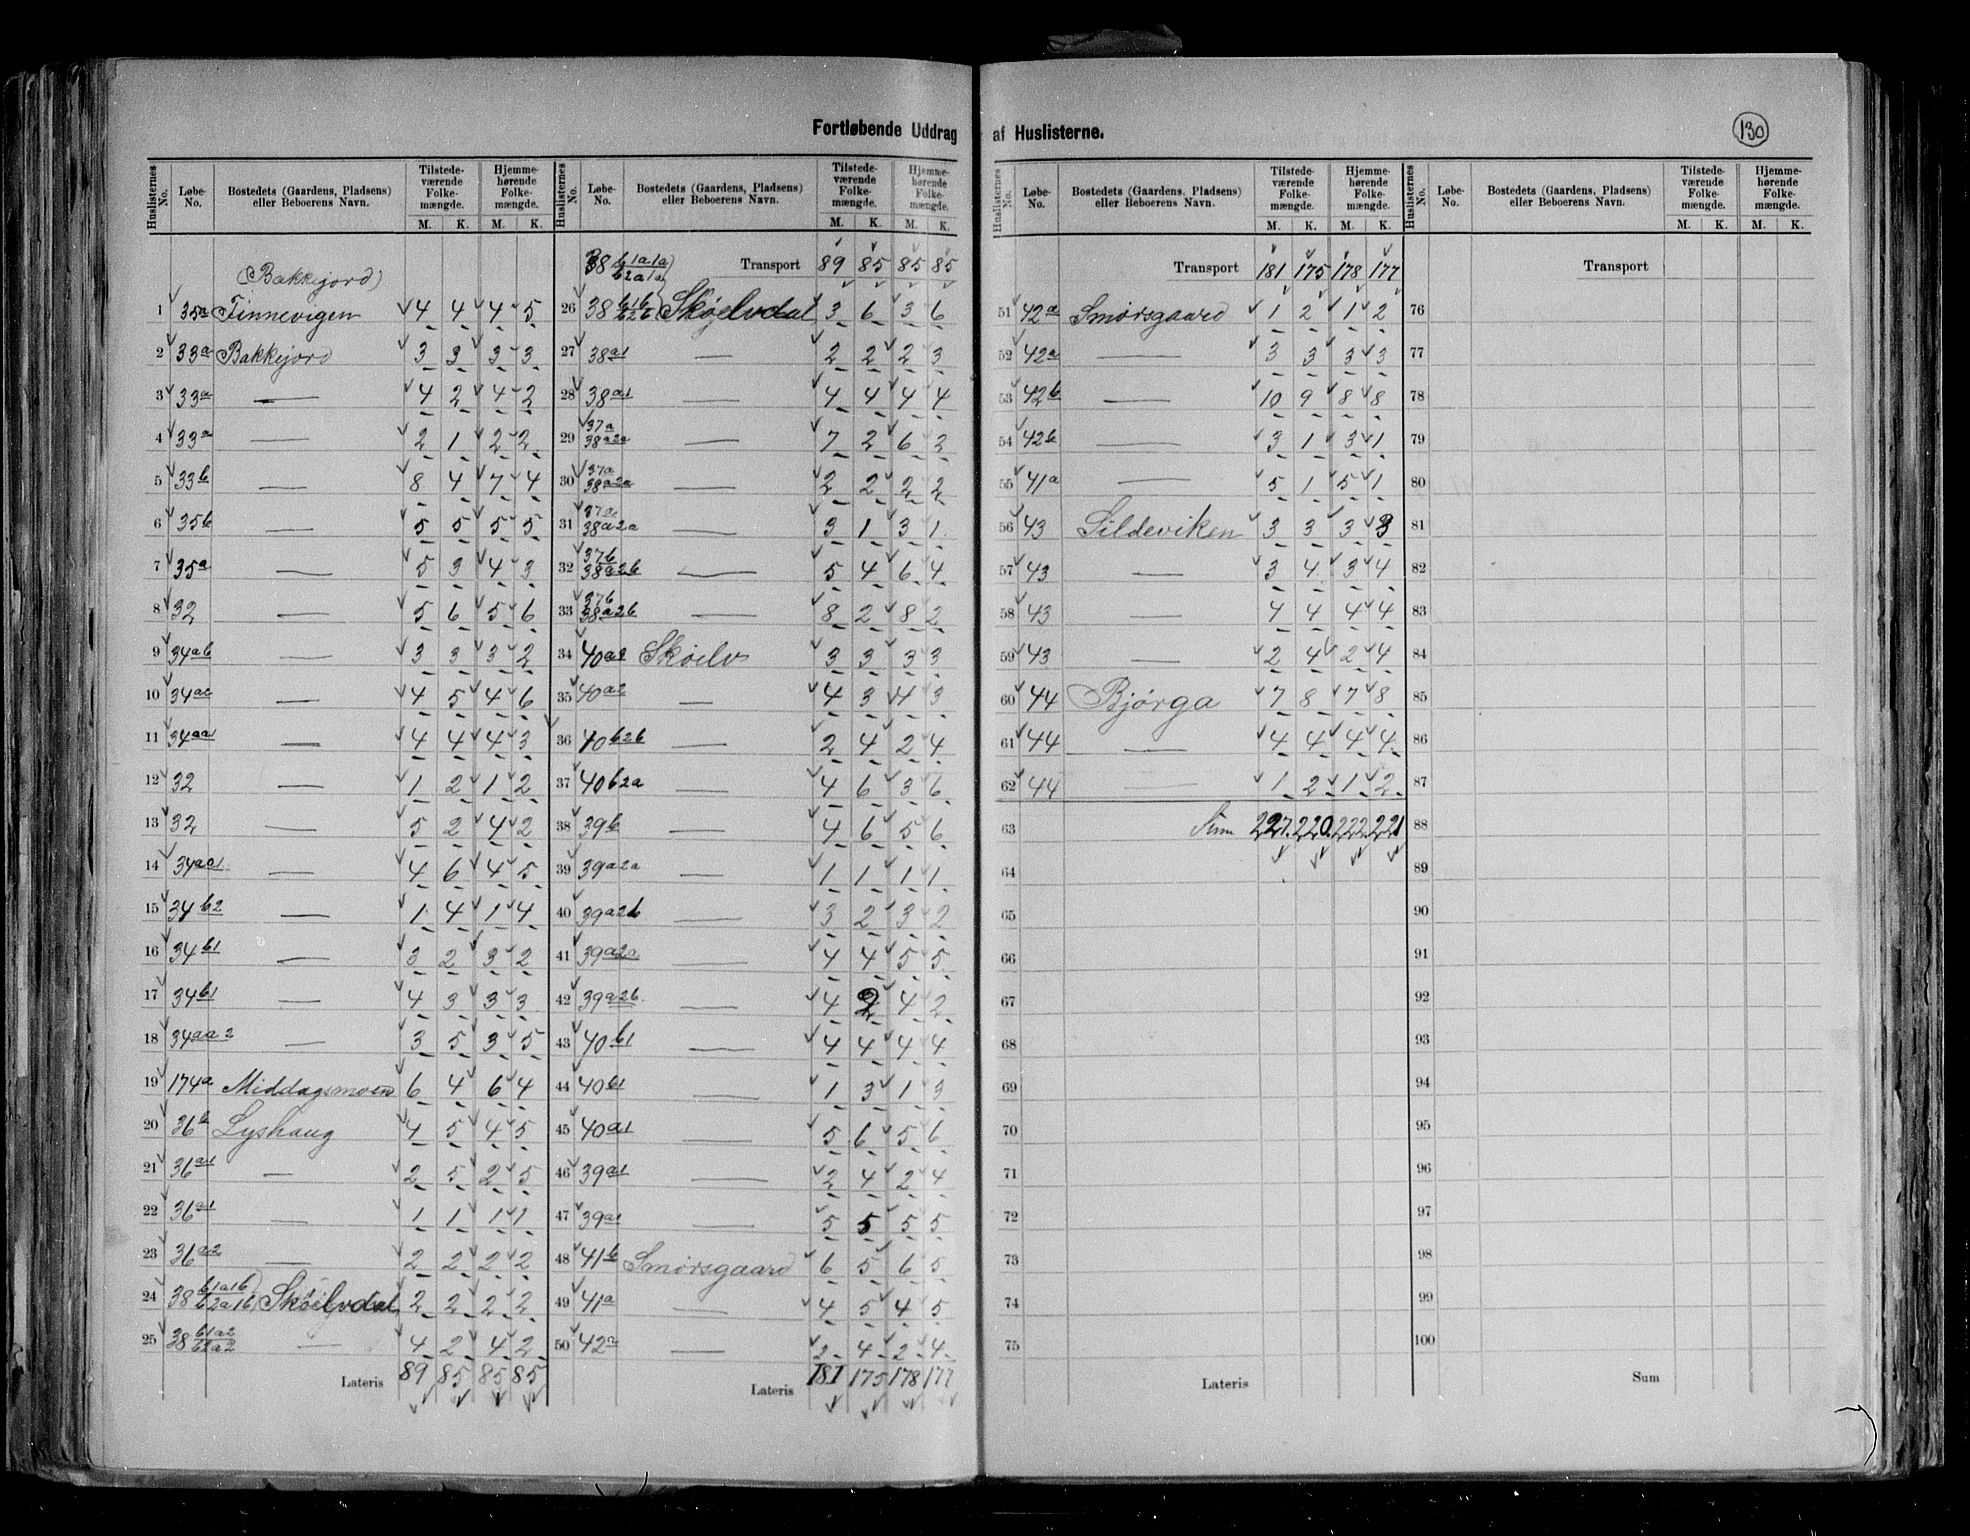 Fortløbende Uddrag af Huslisterne.
130
Huslisternes No. | Løbe-No. | Bostedets (Gaardens, Pladsens) eller Beboerens Navn. | Tilstedeværende Folkemængde. M. K. | Hjemmehørende Folkemængde. M. K.
(Bakkejord)
1 35a Finnevigen 4 4 4 5
2 33a Bakkejord 3 3 3 3
3 33a — 4 2 4 2
4 33a — 2 1 2 2
5 33b — 8 4 7 4
6 35b — 5 5 5 5
7 35a — 5 3 4 3
8 32 — 5 6 5 6
9 34ab — 3 3 3 2
10 34ac — 4 5 4 6
11 34aa1 — 4 4 4 3
12 32 — 1 2 1 2
13 32 — 5 2 4 2
14 34aa1 — 4 6 4 5
15 34b2 — 1 4 1 4
16 34b1 — 3 2 3 2
17 34b1 — 4 3 3 3
18 34aa2 — 3 5 3 5
19 174a Middagsmoen 6 4 6 4
20 36b Lyshaug 4 5 4 5
21 36a1 — 2 5 2 5
22 36a1 — 1 1 1 1
23 36a2 — 2 2 2 2
24 38 b1a1b b2a1b Skøelvdal 2 2 2 2
25 38 b1a2 b2a2 — 4 2 4 2
Lateris 89 85 85 85
Huslisternes No. | Løbe-No. | Bostedets (Gaardens, Pladsens) eller Beboerens Navn. | Tilstedeværende Folkemængde. M. K. | Hjemmehørende Folkemængde. M. K.
38 b1a1a b2a1a Transport 89 85 85 85
26 38 b1b b2b Skøelvdal 3 6 3 6
27 38a1 — 2 2 2 3
28 38a1 — 4 4 4 4
29 37a 38a2a — 7 2 6 3
30 37a 38a2a — 2 2 2 2
31 37a 38a2a — 3 1 3 1
32 37b 38a2b — 5 4 6 4
33 37b 38a2b — 8 2 8 2
34 40a2 Skøelv 3 3 3 3
35 40a2 4 3 4 3
36 40b2b — 2 4 2 4
37 40b2a — 4 6 3 6
38 39b — 4 6 5 6
39 39a2a — 1 1 1 1
40 39a2b — 3 2 3 2
41 39a2a — 4 4 5 5
42 39a2b — 4 2 4 2
43 40b1 — 4 4 4 4
44 40b1 — 1 3 1 3
45 40a1 — 5 6 5 6
46 39a1 — 2 4 2 4
47 39a1 — 5 5 5 5
48 41b Smørsgaard 6 5 6 5
49 41a — 4 5 4 5
50 42a — 2 4 2 4
Lateris 181 175 178 177
Huslisternes No. | Løbe-No. | Bostedets (Gaardens, Pladsens) eller Beboerens Navn. | Tilstedeværende Folkemængde. M. K. | Hjemmehørende Folkemængde. M. K.
Transport 181 175 178 177
51 42a Smørsgaard 1 2 1 2
52 42a — 3 3 3 3
53 42b — 10 9 8 8
54 42b — 3 1 3 1
55 41a — 5 1 5 1
56 43 Sildeviken 3 3 3 3
57 43 — 3 4 3 4
58 43 — 4 4 4 4
59 43 — 2 4 2 4
60 44 Bjørga 7 8 7 8
61 44 — 4 4 4 4
62 44 — 1 2 1 2
63 Sum 227. 220. 222. 221
64
65
66
67
68
69
70
71
72
73
74
75
Lateris
Huslisternes No. | Løbe-No. | Bostedets (Gaardens, Pladsens) eller Beboerens Navn. | Tilstedeværende Folkemængde. M. K. | Hjemmehørende Folkemængde. M. K.
Transport
76
77
78
79
80
81
82
83
84
85
86
87
88
89
90
91
92
93
94
95
96
97
98
99
100
Sum